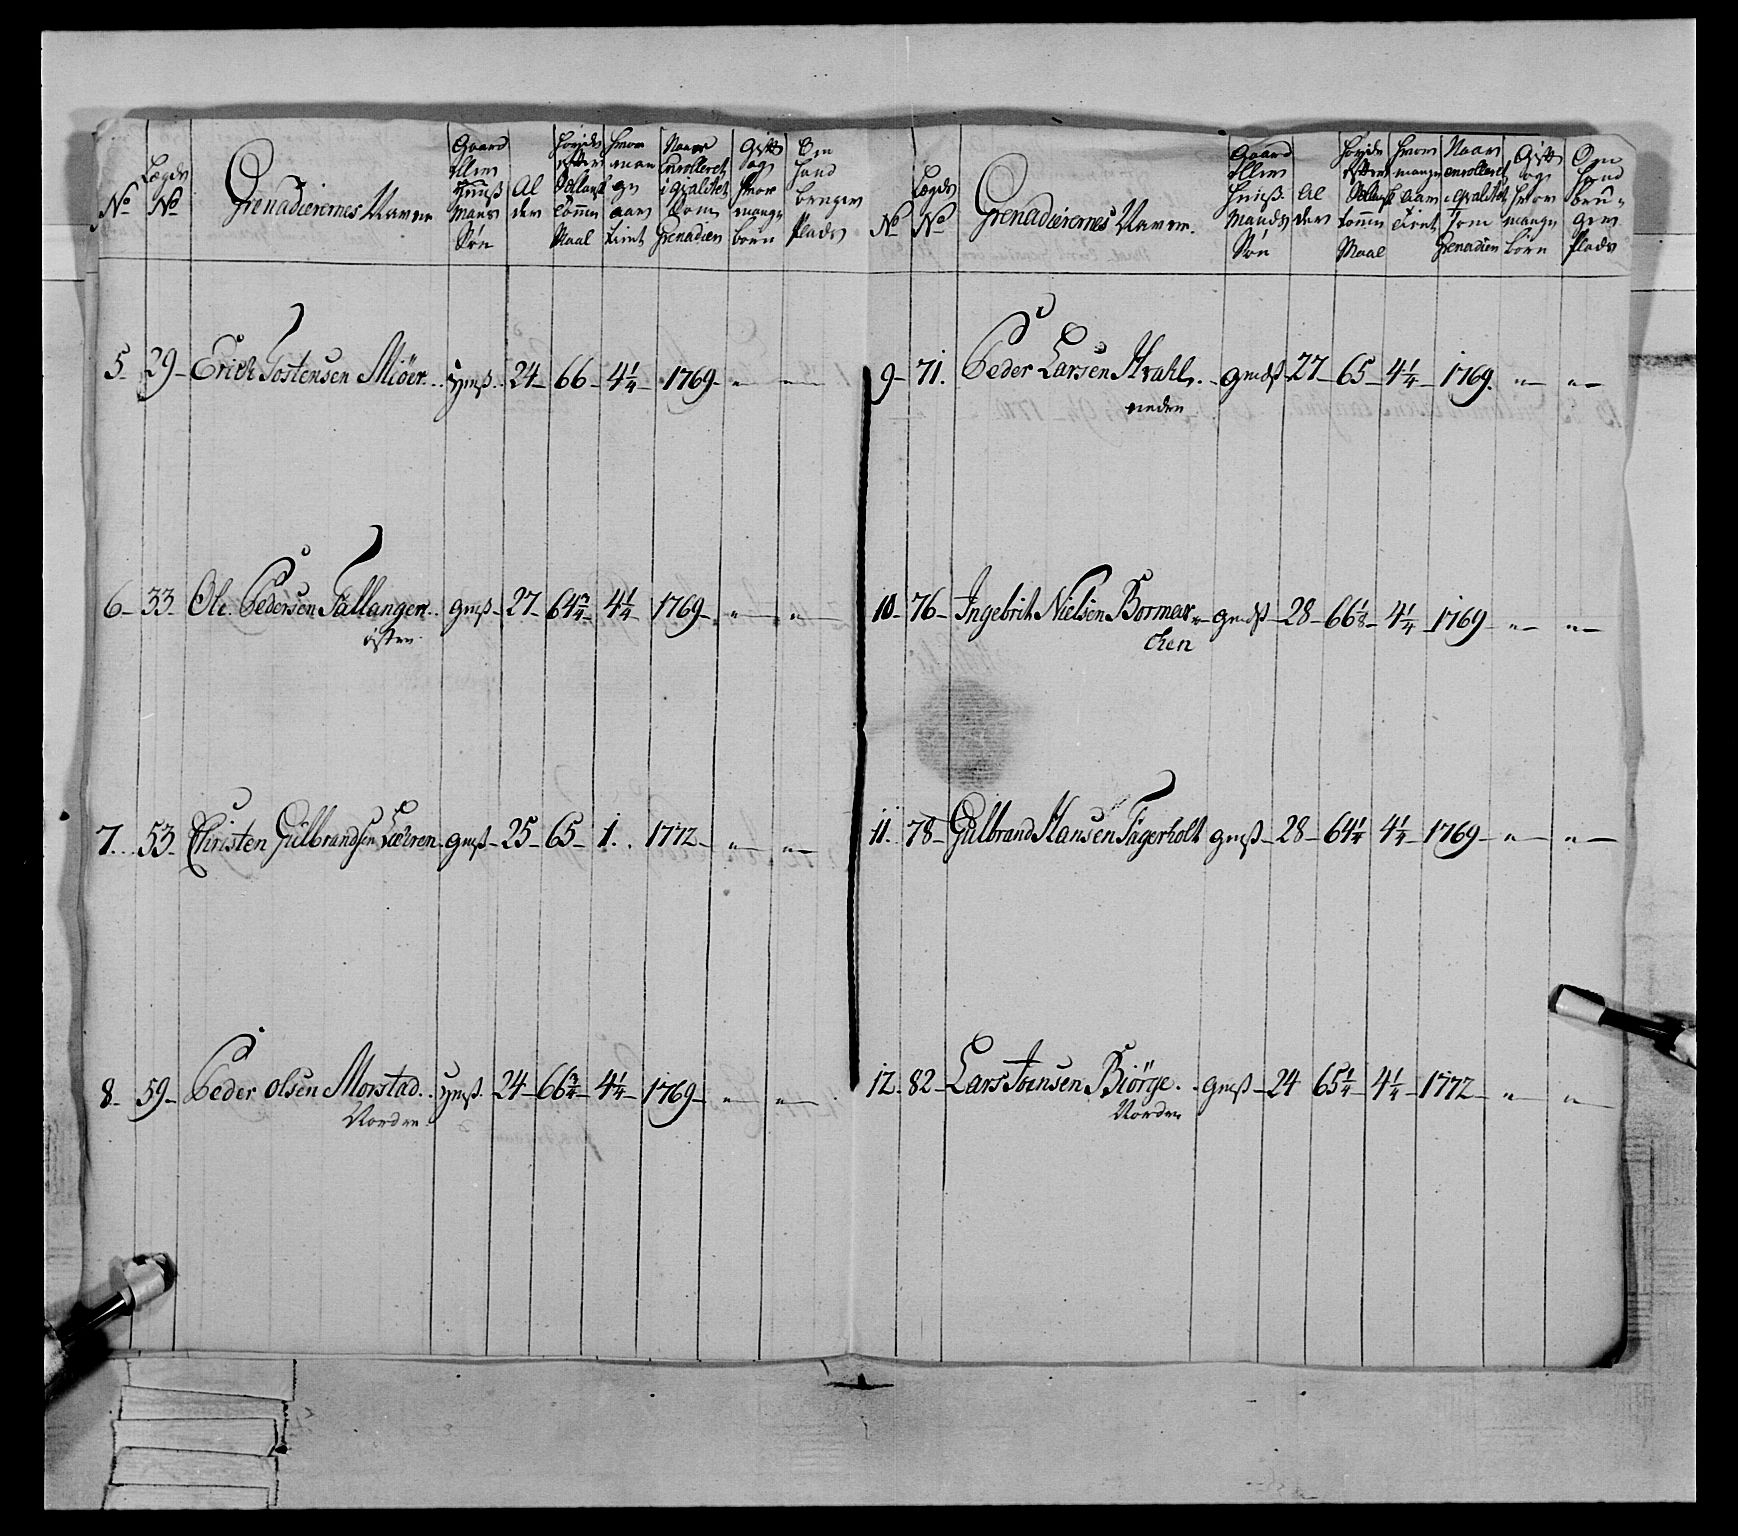 No
Lægds No
Grenadeirernes Navne
Gaard Eller Huuß Mans Søn
Al der
Høyde Efter Tommer Maal
Hvor man ge aar tient
Naar Enrolleret i qvalitet Som Grenadier
Gift og Hvor mange børn
Om Hand Plads
5 29 Erich Tostensen Miöer 24 66 4 1/4 1769 " "
6 33 Ole Pedersen Tallangen gmß 27 64 3/4 4 1/4 1769 " "
östre
7 53 Christen Gulbrandsen gmß 25 65 1 1772 " "
8 59 Peder olsen Morstad 24 66 3/4 4 1/4 1769 " "
Nordre
No
Lægds No
Grenadeirernes Navne
Gaard Eller Huuß Mands Søn
Al der
Høyde Efter Tommer Maal
Hvor mange aar tient
Naar enrolleret i qvalitet som Grenadier
Gift og hvor mange børn
Om Hand bru- ger Plads
9 71 Peder Larsen 27 65 4 1/4 1769 " "
neden
10 76 Ingebrit Nielsen Bormar 28 66 1/8 4 1/4 1769 " "
chen
11 78 Gulbrand Hansen Fagerholt gmß 28 64 1/4 4 1/4 1769 " "
12 82 Lars Joensen Biörge gmß 24 65 1/4 4 1/4 1772 " "
Nordre